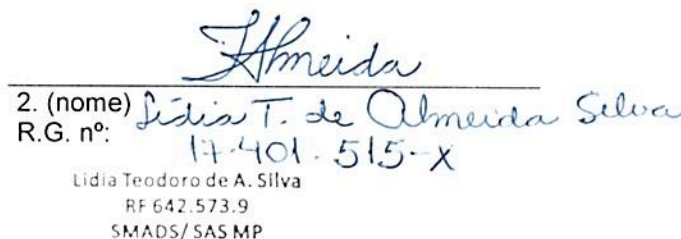 Almeida
2. (nome) Lidia T. de Almeida Silva
R.G. nº: 17.401.515-X
Lidia Teodoro de A. Silva
RF 642.573.9
SMADS/ SAS MP